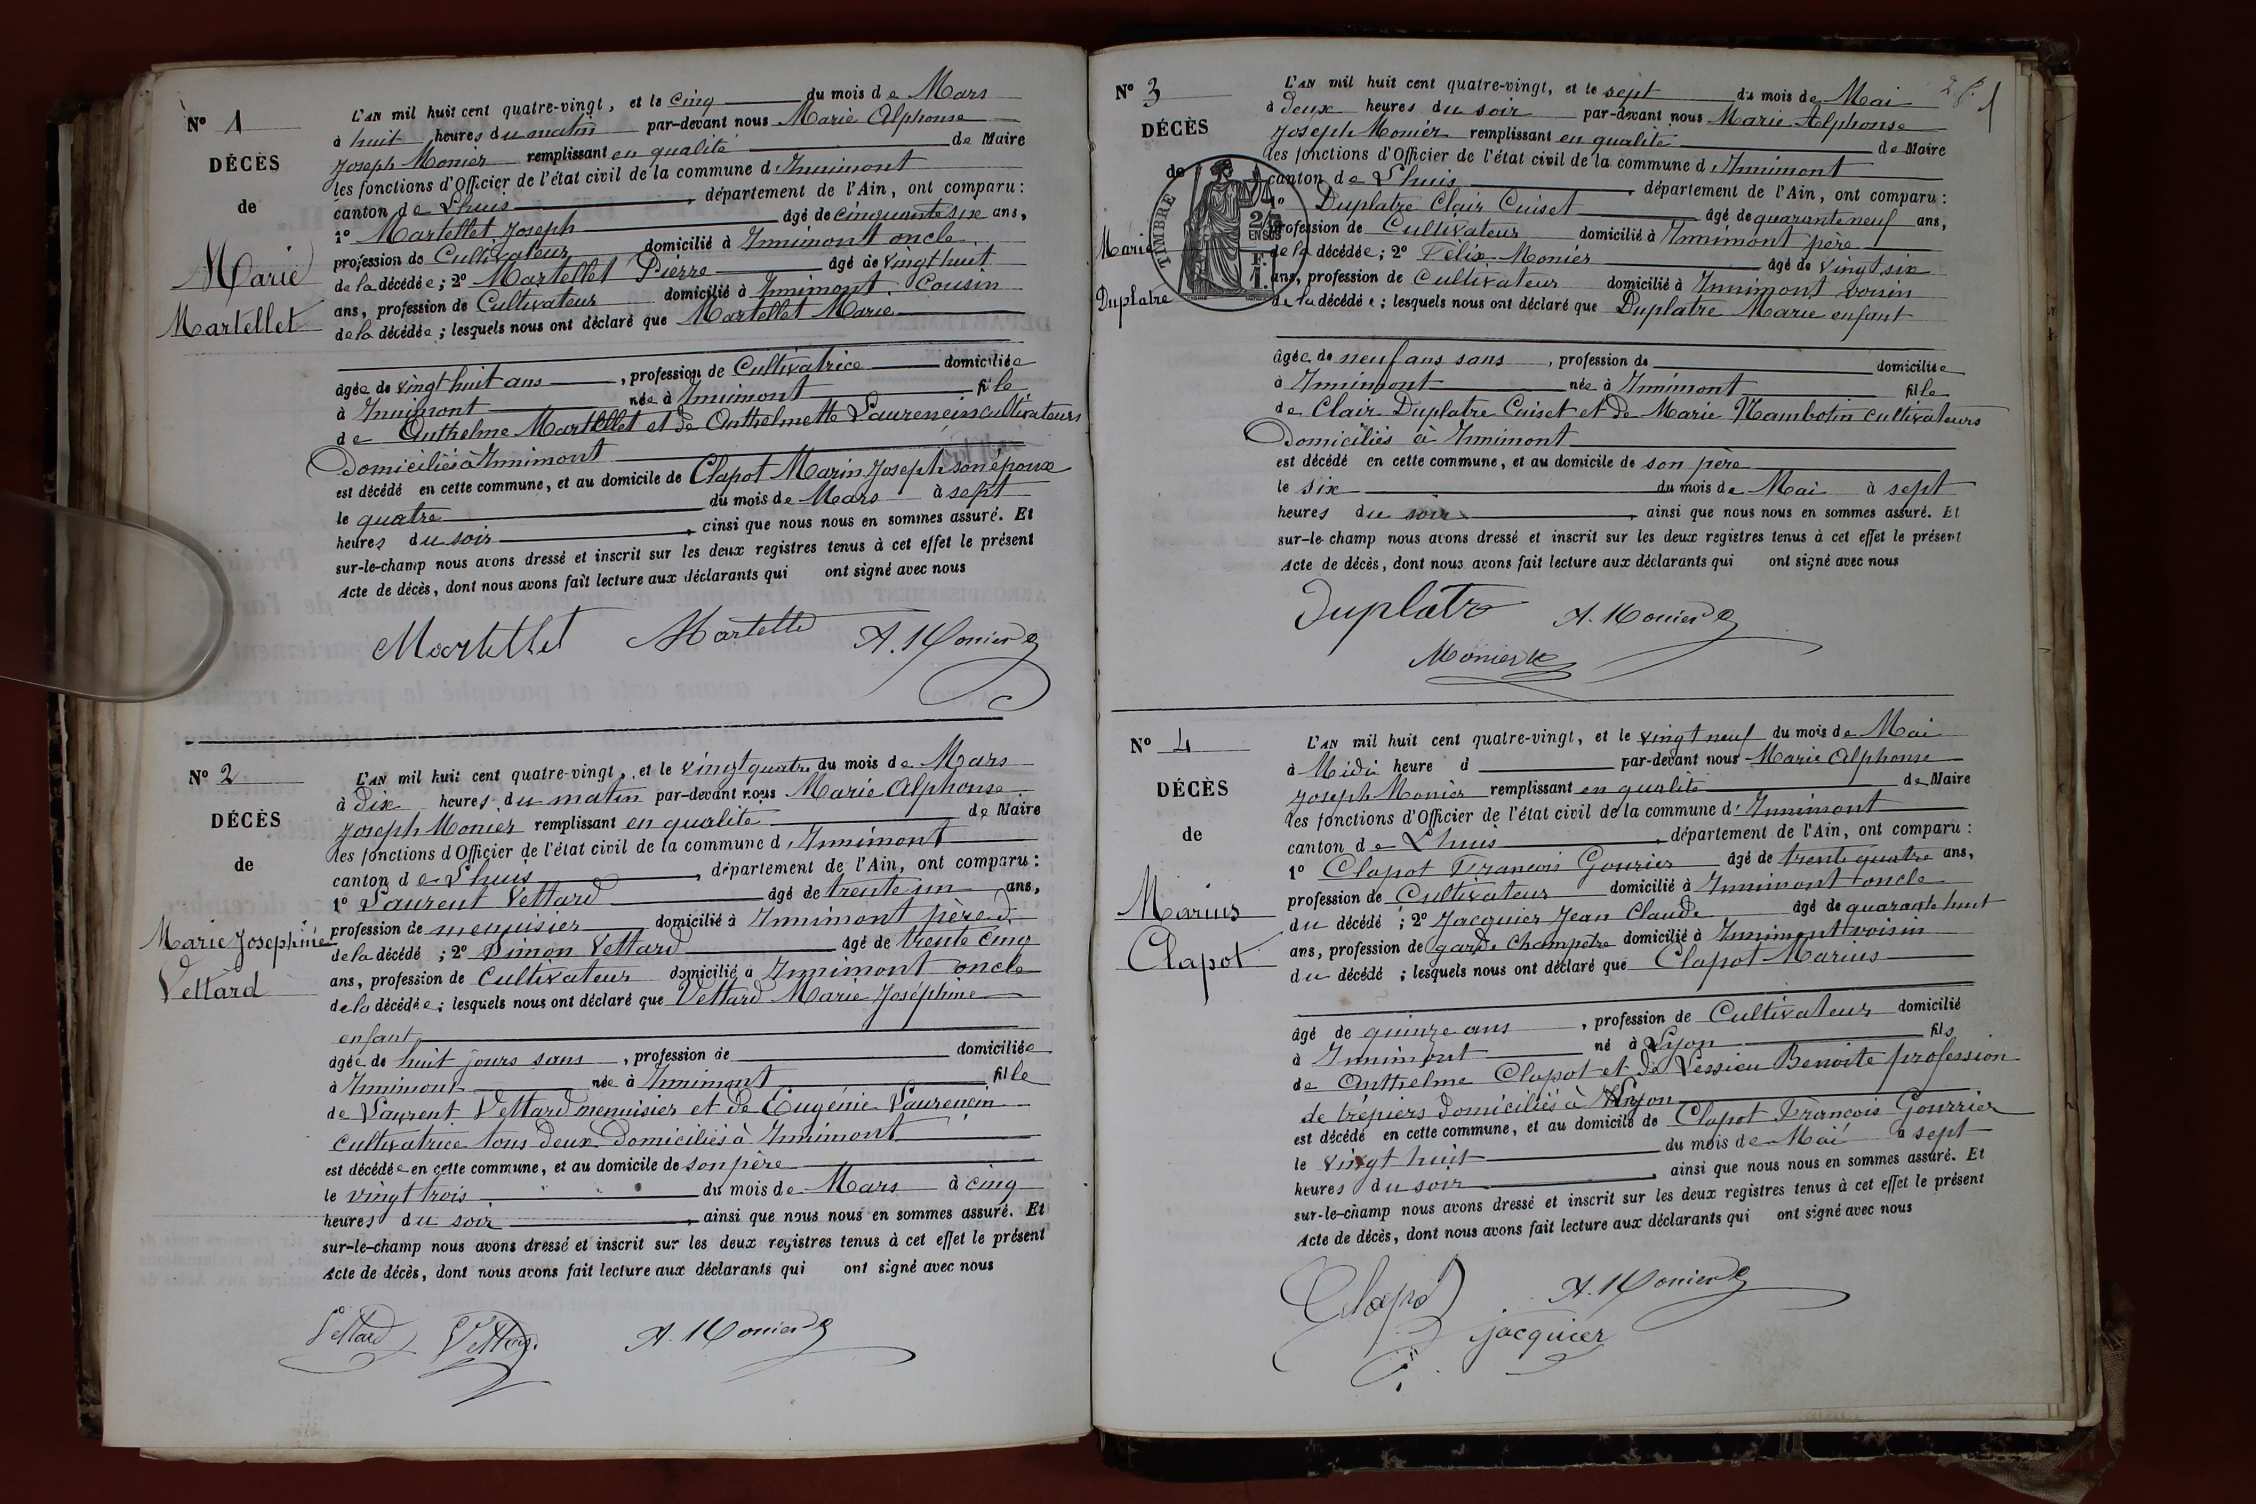 N° 1
DÉCÈS
de
Marie
Martellet
L'AN mil huit cent quatre-vingt, et le cinq du mois de Mars
à huit heures du matin par-devant nous Marie Alphonse
Joseph Monier remplissant en qualité de Maire
les fonctions d'Officier de l'état civil de la commune d'Innimont
canton de Lhuis, département de l'Ain, ont comparu :
1° Martellet Joseph âgé de cinquante six ans,
profession de Cultivateur domicilié à Innimont oncle
de la décédée ; 2° Martellet Pierre âgé de vingt huit
ans, profession de Cultivateur domicilié à Innimont Cousin
de la décédée ; lesquels nous ont déclaré que Martellet Marie
âgée de vingt huit ans, profession de Cultivatrice domiciliée
à Innimont née à Innimont fille
de Anthelme Martellet et de Anthelmette Laurencin cultivateurs
domiciliés à Innimont
est décédé en cette commune, et au domicile de Clapot Marin Joseph son époux
le quatre du mois de Mars à sept
heures du soir, ainsi que nous nous en sommes assuré. Et
sur-le-champ nous avons dressé et inscrit sur les deux registres tenus à cet effet le présent
Acte de décès, dont nous avons fait lecture aux déclarants qui ont signé avec nous
Martellet Martellet A. Monier
N° 2
DÉCÈS
de
Marie Josephine
Vettard
L'AN mil huit cent quatre-vingt, et le vingt quatre du mois de Mars
à dix heures du matin par-devant nous Marie Alphonse
Joseph Monier remplissant en qualité de Maire
les fonctions d'Officier de l'état civil de la commune d'Innimont
canton de Lhuis, département de l'Ain, ont comparu :
1° Laurent Vettard âgé de trente un ans,
profession de menuisier domicilié à Innimont père d
de la décédé ; 2° Simon Vettard âgé de trente cinq
ans, profession de Cultivateur domicilié à Innimont oncle
de la décédée ; lesquels nous ont déclaré que Vettard Marie Joséphine
enfant
âgée de huit jours sans, profession de domiciliée
à Innimont née à Innimont fille
de Laurent Vettard menuisier et de Eugénie Laurencin
cultivatrice tous deux domiciliés à Innimont
est décédée en cette commune, et au domicile de son père
le vingt trois du mois de Mars à cinq
heures du soir, ainsi que nous nous en sommes assuré. Et
sur-le-champ nous avons dressé et inscrit sur les deux registres tenus à cet effet le présent
Acte de décès, dont nous avons fait lecture aux déclarants qui ont signé avec nous
Vettard Vettard A. Monier
N° 3
DÉCÈS
de
Marie
Duplatre
TIMBRE
2/10
EN SUS
F.
1.
L'AN mil huit cent quatre-vingt, et le sept du mois de Mai
à deux heures du soir par-devant nous Marie Alphonse
Joseph Monier remplissant en qualité de Maire
les fonctions d'Officier de l'état civil de la commune d'Innimont
canton de Lhuis, département de l'Ain, ont comparu :
1° Duplatre Clair Cuiset âgé de quarante neuf ans,
profession de Cultivateur domicilié à Innimont père
de la décédée ; 2° Félix Monier âgé de vingt six
ans, profession de Cultivateur domicilié à Innimont voisin
de la décédée ; lesquels nous ont déclaré que Duplatre Marie enfant
âgée de neuf ans sans, profession de domiciliée
à Innimont née à Innimont fille
de Clair Duplatre Cuiset et de Marie Nambotin cultivateurs
Domiciliés à Innimont
est décédé en cette commune, et au domicile de son père
le six du mois de Mai à sept
heures du soir, ainsi que nous nous en sommes assuré. Et
sur-le-champ nous avons dressé et inscrit sur les deux registres tenus à cet effet le présent
Acte de décès, dont nous avons fait lecture aux déclarants qui ont signé avec nous
Duplatre A. Monier
Monier
N° 4
DÉCÈS
de
Marius
Clapot
L'AN mil huit cent quatre-vingt, et le vingt neuf du mois de Mai
à Midi heure d par-devant nous Marie Alphonse
Joseph Monier remplissant en qualité de Maire
les fonctions d'Officier de l'état civil de la commune d'Innimont
canton de Lhuis, département de l'Ain, ont comparu :
1° Clapot François Gourrier âgé de trente quatre ans,
profession de Cultivateur domicilié à Innimont oncle
du décédé ; 2° Jacquier Jean Claude âgé de quarante huit
ans, profession de garde Champêtre domicilié à Innimont voisin
du décédé ; lesquels nous ont déclaré que Clapot Marius
âgé de quinze ans, profession de Cultivateur domicilié
à Innimont né à Lyon fils
de Anthelme Clapot et de Vessieu Benoite profession
de trépiers domiciliés à Lyon
est décédé en cette commune, et au domicile de Clapot François Gourrier
le vingt huit du mois de Mai à sept
heures du soir, ainsi que nous nous en sommes assuré. Et
sur-le-champ nous avons dressé et inscrit sur les deux registres tenus à cet effet le présent
Acte de décès, dont nous avons fait lecture aux déclarants qui ont signé avec nous
Clapot A. Monier
Jacquier